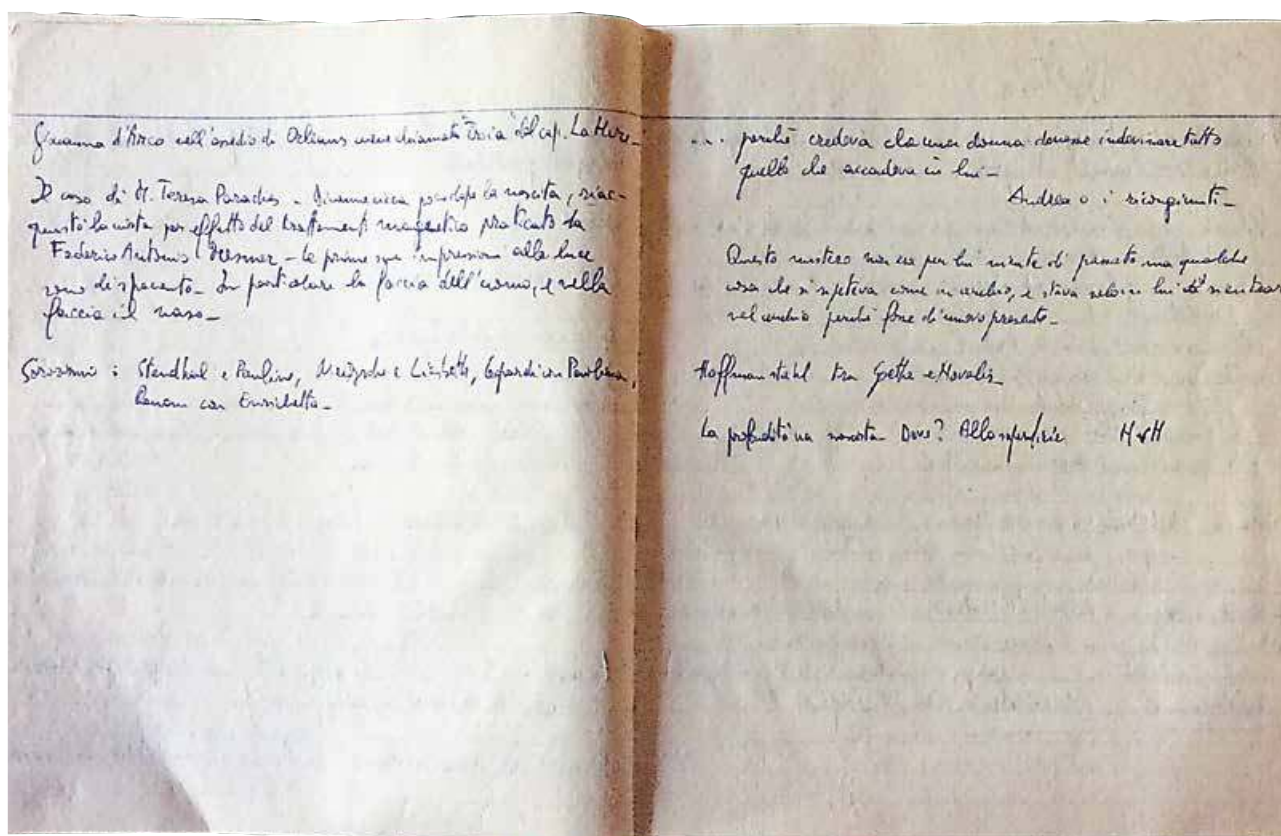 Giovanna d'Arco nell'assedio di Orléans viene chiamata "Troia" dal cap. La Hire –
Il caso di M. Teresa Paradies – Divenne cieca poco dopo la nascita, riac-
quistò la vista per effetto del trattamento magnetico praticato da
Federico Antonio Mesmer – le prime sue impressioni alla luce
sono di spavento – In particolare la faccia dell'uomo, e nella
faccia il naso –
Stendhal e Pauline, Nietzsche e Lisbeth, Leopardi con Paolina,
Renan con Enrichetta –
... perché credeva che una donna dovesse indovinare tutto
quello che accadeva in lui –
Andrea o i ricongiunti –
Questo mistero non era per lui niente di passato ma qualche
cosa che si ripeteva come in cerchio, e stava solo in lui di rientrare
nel cerchio perché fosse di nuovo presente –
Hoffmanstahl tra Goethe e Novalis
La profondità va nascosta – Dove? Alla superficie H v H